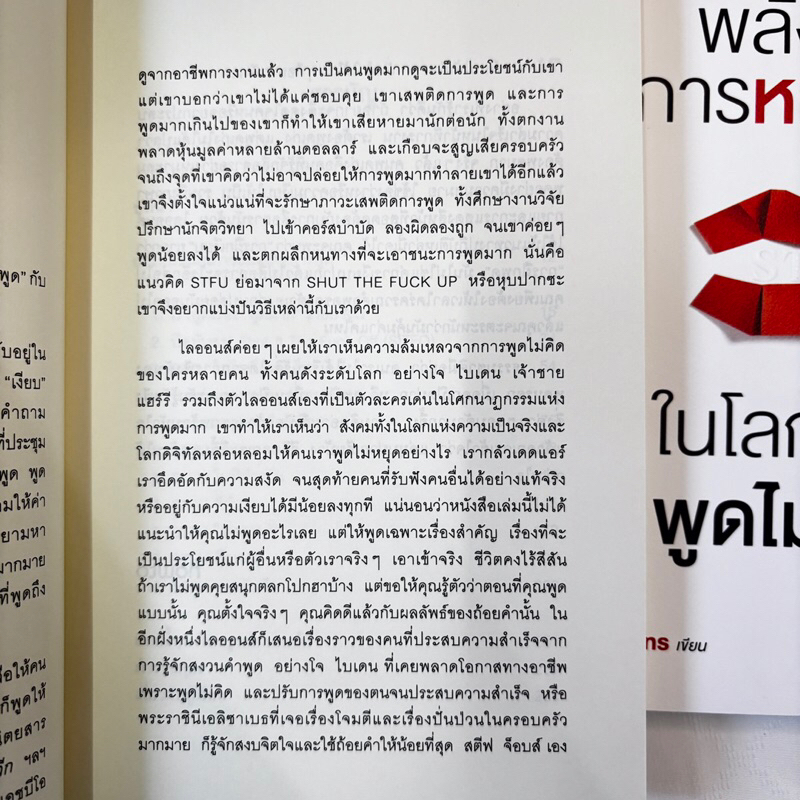 พูด" กับ
ับอยู่ใน
"เงียบ"
คำถาม
ที่ประชุม
พูด พูด
ามให้ค่า
ยามหา
มากมาย
ที่พูดถึง
ือให้คน
ก็พูดให้
ิตยสาร
ีก ฯลฯ
เอชบีโอ
ดูจากอาชีพการงานแล้ว การเป็นคนพูดมากดูจะเป็นประโยชน์กับเขา
แต่เขาบอกว่าเขาไม่ได้แค่ชอบคุย เขาเสพติดการพูด และการ
พูดมากเกินไปของเขาก็ทำให้เขาเสียหายมานักต่อนัก ทั้งตกงาน
พลาดหุ้นมูลค่าหลายล้านดอลลาร์ และเกือบจะสูญเสียครอบครัว
จนถึงจุดที่เขาคิดว่าไม่อาจปล่อยให้การพูดมากทำลายเขาได้อีกแล้ว
เขาจึงตั้งใจแน่วแน่ที่จะรักษาภาวะเสพติดการพูด ทั้งศึกษางานวิจัย
ปรึกษานักจิตวิทยา ไปเข้าคอร์สบำบัด ลองผิดลองถูก จนเขาค่อยๆ
พูดน้อยลงได้ และตกผลึกหนทางที่จะเอาชนะการพูดมาก นั่นคือ
แนวคิด STFU ย่อมาจาก SHUT THE FUCK UP หรือหุบปากซะ
เขาจึงอยากแบ่งปันวิธีเหล่านี้กับเราด้วย
ไลออนส์ค่อยๆ เผยให้เราเห็นความล้มเหลวจากการพูดไม่คิด
ของใครหลายคน ทั้งคนดังระดับโลก อย่างโจ ไบเดน เจ้าชาย
แฮร์รี รวมถึงตัวไลออนส์เองที่เป็นตัวละครเด่นในโศกนาฏกรรมแห่ง
การพูดมาก เขาทำให้เราเห็นว่า สังคมทั้งในโลกแห่งความเป็นจริงและ
โลกดิจิทัลหล่อหลอมให้คนเราพูดไม่หยุดอย่างไร เรากลัวเดดแอร์
เราอึดอัดกับความสงัด จนสุดท้ายคนที่รับฟังคนอื่นได้อย่างแท้จริง
หรืออยู่กับความเงียบได้มีน้อยลงทุกที แน่นอนว่าหนังสือเล่มนี้ไม่ได้
แนะนำให้คุณไม่พูดอะไรเลย แต่ให้พูดเฉพาะเรื่องสำคัญ เรื่องที่จะ
เป็นประโยชน์แก่ผู้อื่นหรือตัวเราจริงๆ เอาเข้าจริง ชีวิตคงไร้สีสัน
ถ้าเราไม่พูดคุยสนุกตลกโปกฮาบ้าง แต่ขอให้คุณรู้ตัวว่าตอนที่คุณพูด
แบบนั้น คุณตั้งใจจริงๆ คุณคิดดีแล้วกับผลลัพธ์ของถ้อยคำนั้น ใน
อีกฝั่งหนึ่งไลออนส์ก็เสนอเรื่องราวของคนที่ประสบความสำเร็จจาก
การรู้จักสงวนคำพูด อย่างโจ ไบเดน ที่เคยพลาดโอกาสทางอาชีพ
เพราะพูดไม่คิด และปรับการพูดของตนจนประสบความสำเร็จ หรือ
พระราชินีเอลิซาเบธที่เจอเรื่องโจมตีและเรื่องปั่นป่วนในครอบครัว
มากมาย ก็รู้จักสงบจิตใจและใช้ถ้อยคำให้น้อยที่สุด สตีฟ จ็อบส์ เอง
พลัง
การห
ในโลก
พูดไม
ทร เขียน